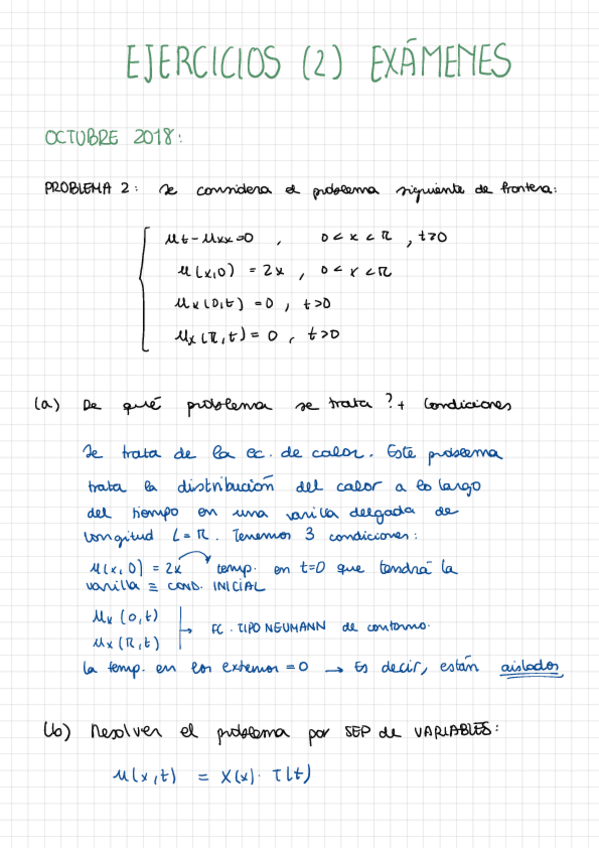 EJERCICIOS (2) EXÁMENES
OCTUBRE 2018:
PROBLEMA 2: Se considera el problema siguiente de frontera:
ut - uxx = 0 , 0 < x < π , t > 0
u(x,0) = 2x , 0 < x < π
ux(0,t) = 0 , t > 0
ux(π,t) = 0 , t > 0
(a) De qué problema se trata ? + Condiciones
Se trata de la ec. de calor. Este problema
trata la distribución del calor a lo largo
del tiempo en una varilla delgada de
longitud L = π. Tenemos 3 condiciones:
u(x,0) = 2x temp. en t=0 que tendrá la
varilla ≡ COND. INICIAL
ux (0,t)
ux (π,t) → FC. TIPO NEUMANN de contorno.
La temp. en los extremos = 0 → Es decir, están aislados
(b) Resolver el problema por SEP de VARIABLES:
u(x,t) = X(x) · T(t)